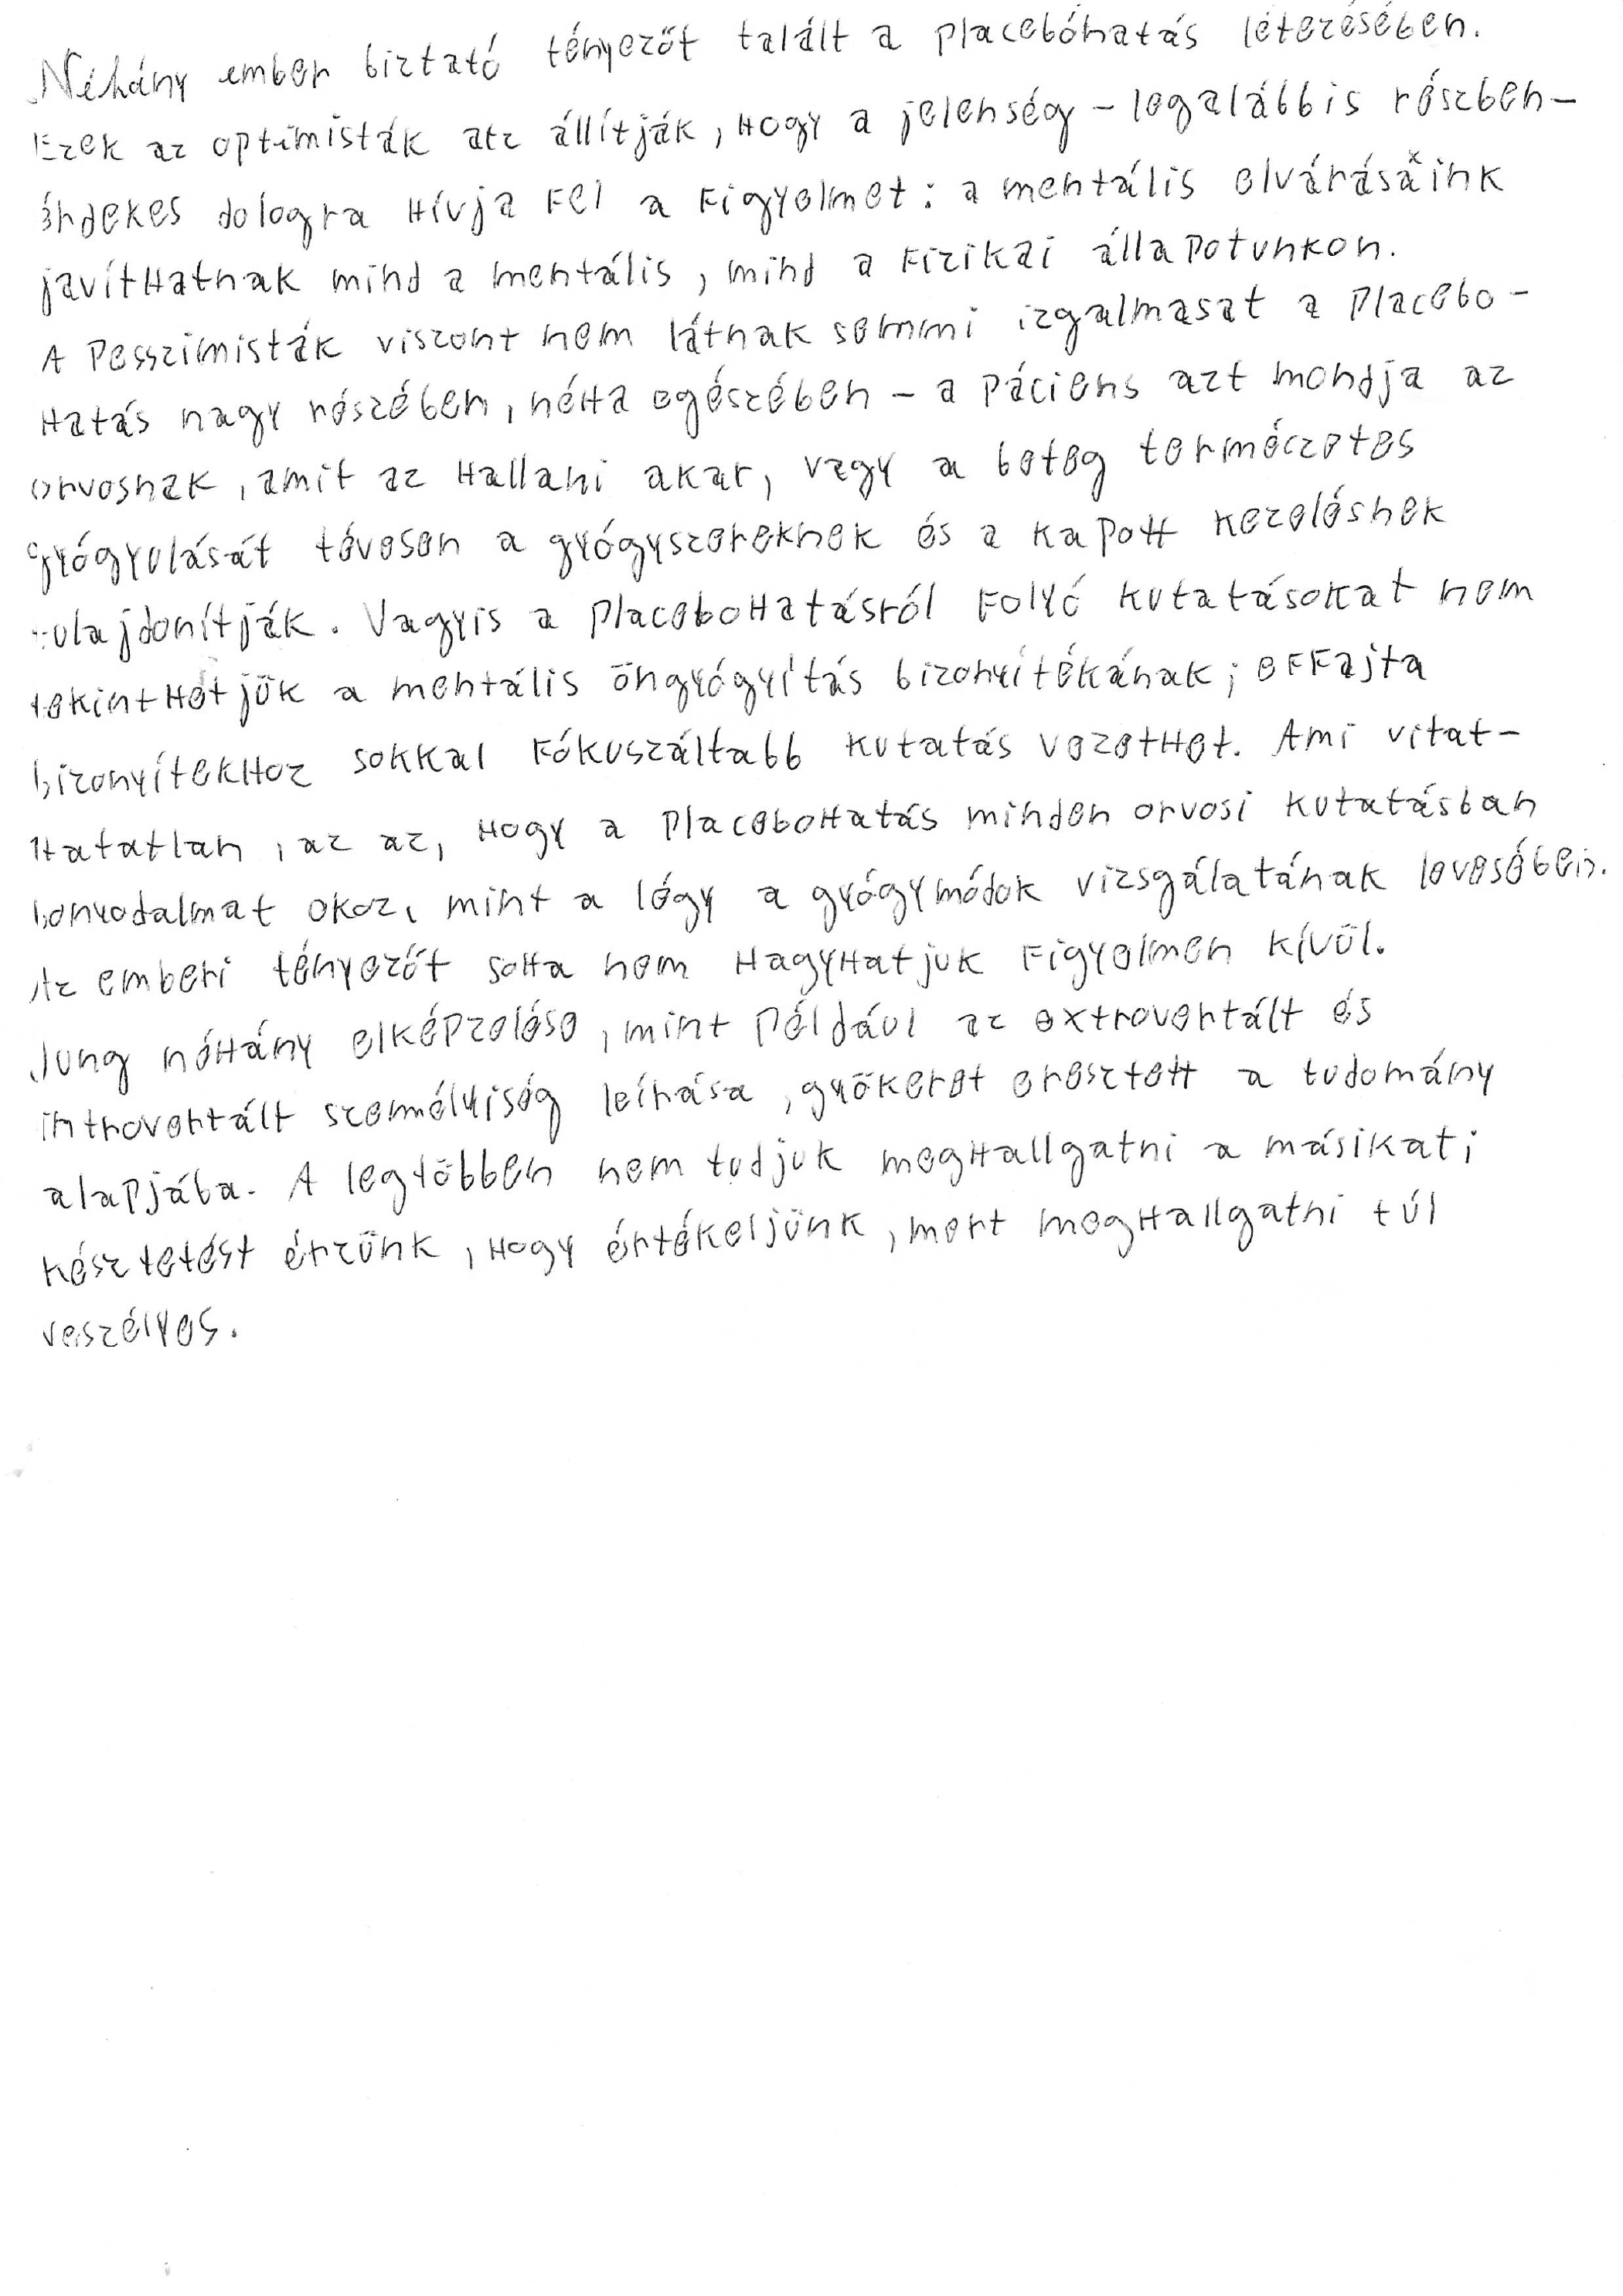 Néhány ember biztató tényezőt talált a placebóhatás létezésében.
Ezek az optimisták azt állítják, hogy a jelenség – legalábbis részben –
érdekes dologra hívja fel a figyelmet: a mentális elvárásaink
javíthatnak mind a mentális, mind a fizikai állapotunkon.
A pesszimisták viszont nem látnak semmi izgalmasat a placebo-
hatás nagy részében, néha egészében – a páciens azt mondja az
orvosnak, amit az hallani akar, vagy a beteg természetes
gyógyulását tévesen a gyógyszereknek és a kapott kezelésnek
tulajdonítják. Vagyis a placebohatásról folyó kutatásokat nem
tekinthetjük a mentális öngyógyítás bizonyítékának; effajta
bizonyítekhoz sokkal fókuszáltabb kutatás vezethet. Ami vitat-
hatatlan, az az, hogy a placebohatás minden orvosi kutatásban
bonyodalmat okoz, mint a légy a gyógymódok vizsgálatának levesében.
Az emberi tényezőt soha nem hagyhatjuk figyelmen kívül.
Jung néhány elképzelése, mint például az extrovertált és
introvertált személyiség leírása, gyökeret eresztett a tudomány
alapjába. A legtöbben nem tudjuk meghallgatni a másikat;
késztetést érzünk, hogy értékeljünk, mert meghallgatni túl
veszélyes.